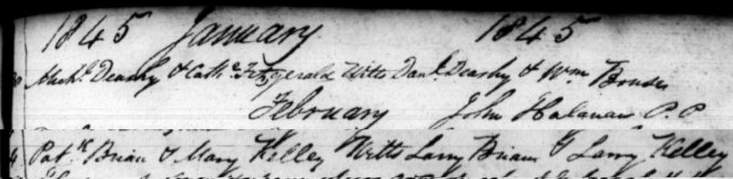 1845 January 1845
Mich.l Deashy & Cath.e Fitzgerald Witts Dan.l Deashy & Wm
February John Halanan P.P
Pat.k Brian & Mary Kelley Witts Larry Brian & Larry Kelley